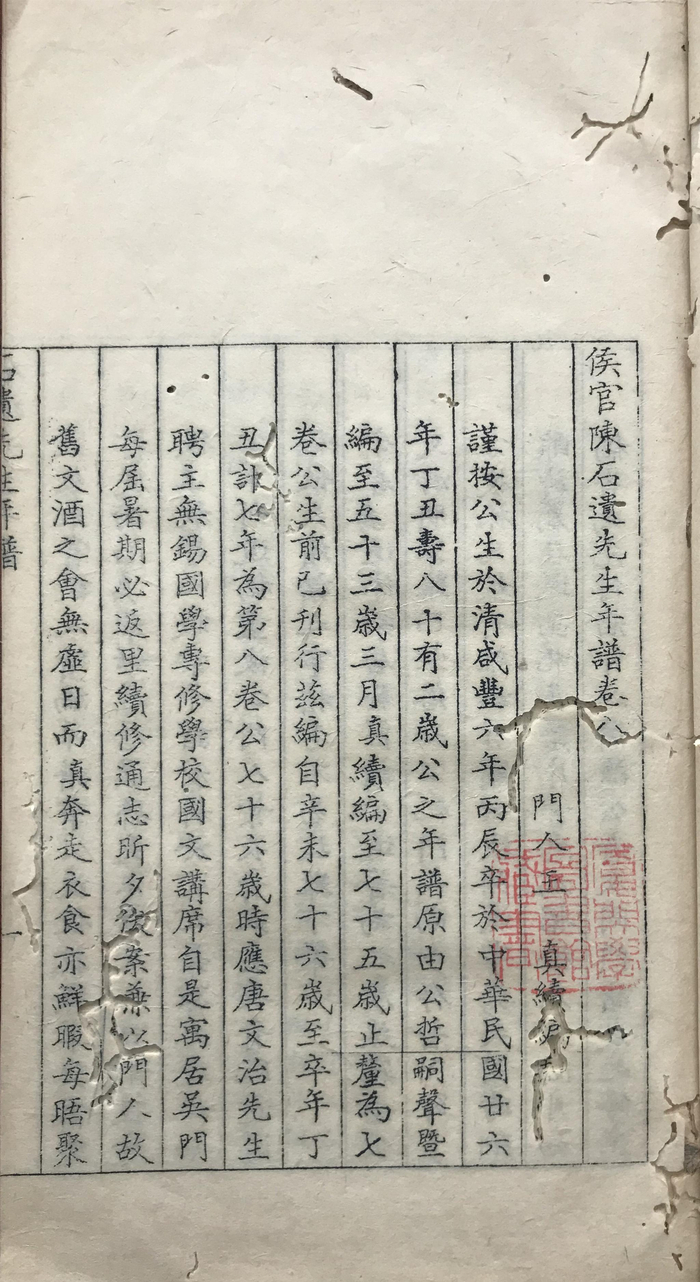 侯官陳石遺先生年譜卷八
門人王 真續編
謹按公生於清咸豐六年丙辰卒於中華民國廿六
年丁丑壽八十有二歲公之年譜原由公哲嗣聲暨
編至五十三歲三月真續編至七十五歲止釐為七
卷公生前已刊行茲編自辛未七十六歲至卒年丁
丑訃七年為第八卷公七十六歲時應唐文治先生
聘主無錫國學專修學校國文講席自是寓居吳門
每屆暑期必返里續修通志昕夕伏案兼以門人故
舊文酒之會無虛日而真奔走衣食亦鮮暇每晤聚
石遺先生年譜
一